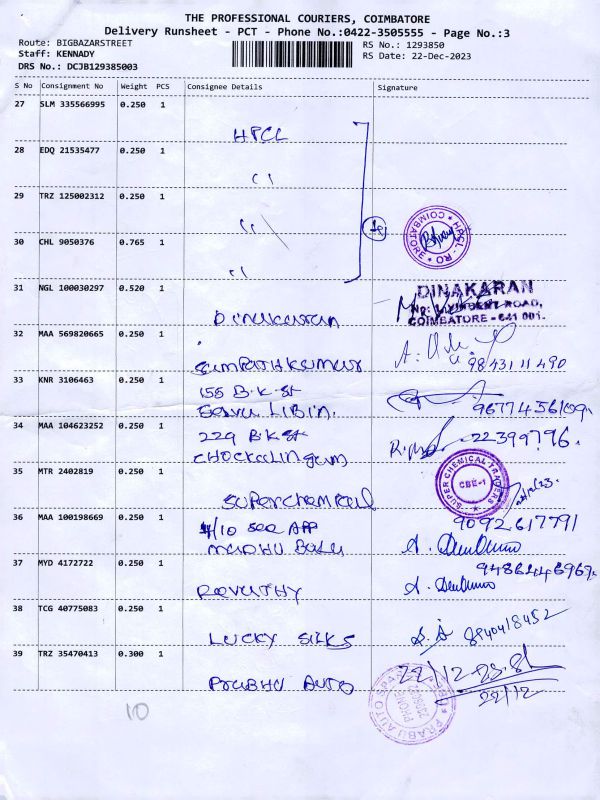 THE PROFESSIONAL COURIERS, COIMBATORE
Delivery Runsheet - PCT - Phone No.:0422-3505555 - Page No.:3
Route: BIGBAZARSTREET
Staff: KENNADY
DRS No.: DCJB129385003
RS No.: 1293850
RS Date: 22-Dec-2023
S No Consignment No Weight PCS Consignee Details Signature
27 SLM 335566995 0.250 1
HPCL
28 EDQ 21535477 0.250 1
29 TRZ 125002312 0.250 1
30 CHL 9050376 0.765 1
HPCL RO
COIMBATORE
31 NGL 100030297 0.520 1
Dinakaran
DINAKARAN
COIMBATORE - 641 001.
32 MAA 569820665 0.250 1
Sampathkumar
98431 11490
33 KNR 3106463 0.250 1
155 B.K St
LIBIN.
9677456109
34 MAA 104623252 0.250 1
229 B.K St
CHOCKALINGAM
22399796.
35 MTR 2402819 0.250 1
Superchemical
SUPER CHEMICAL TRADERS
CBE-1
36 MAA 100198669 0.250 1
4/10 See APP
Madhu Balu
9092617791
37 MYD 4172722 0.250 1
Revathy
9486446969
38 TCG 40775083 0.250 1
LUCKY SILKS
8940418452
39 TRZ 35470413 0.300 1
Prabhu Auto
22/12
PRABU AUTO SPARES
PHONE
10